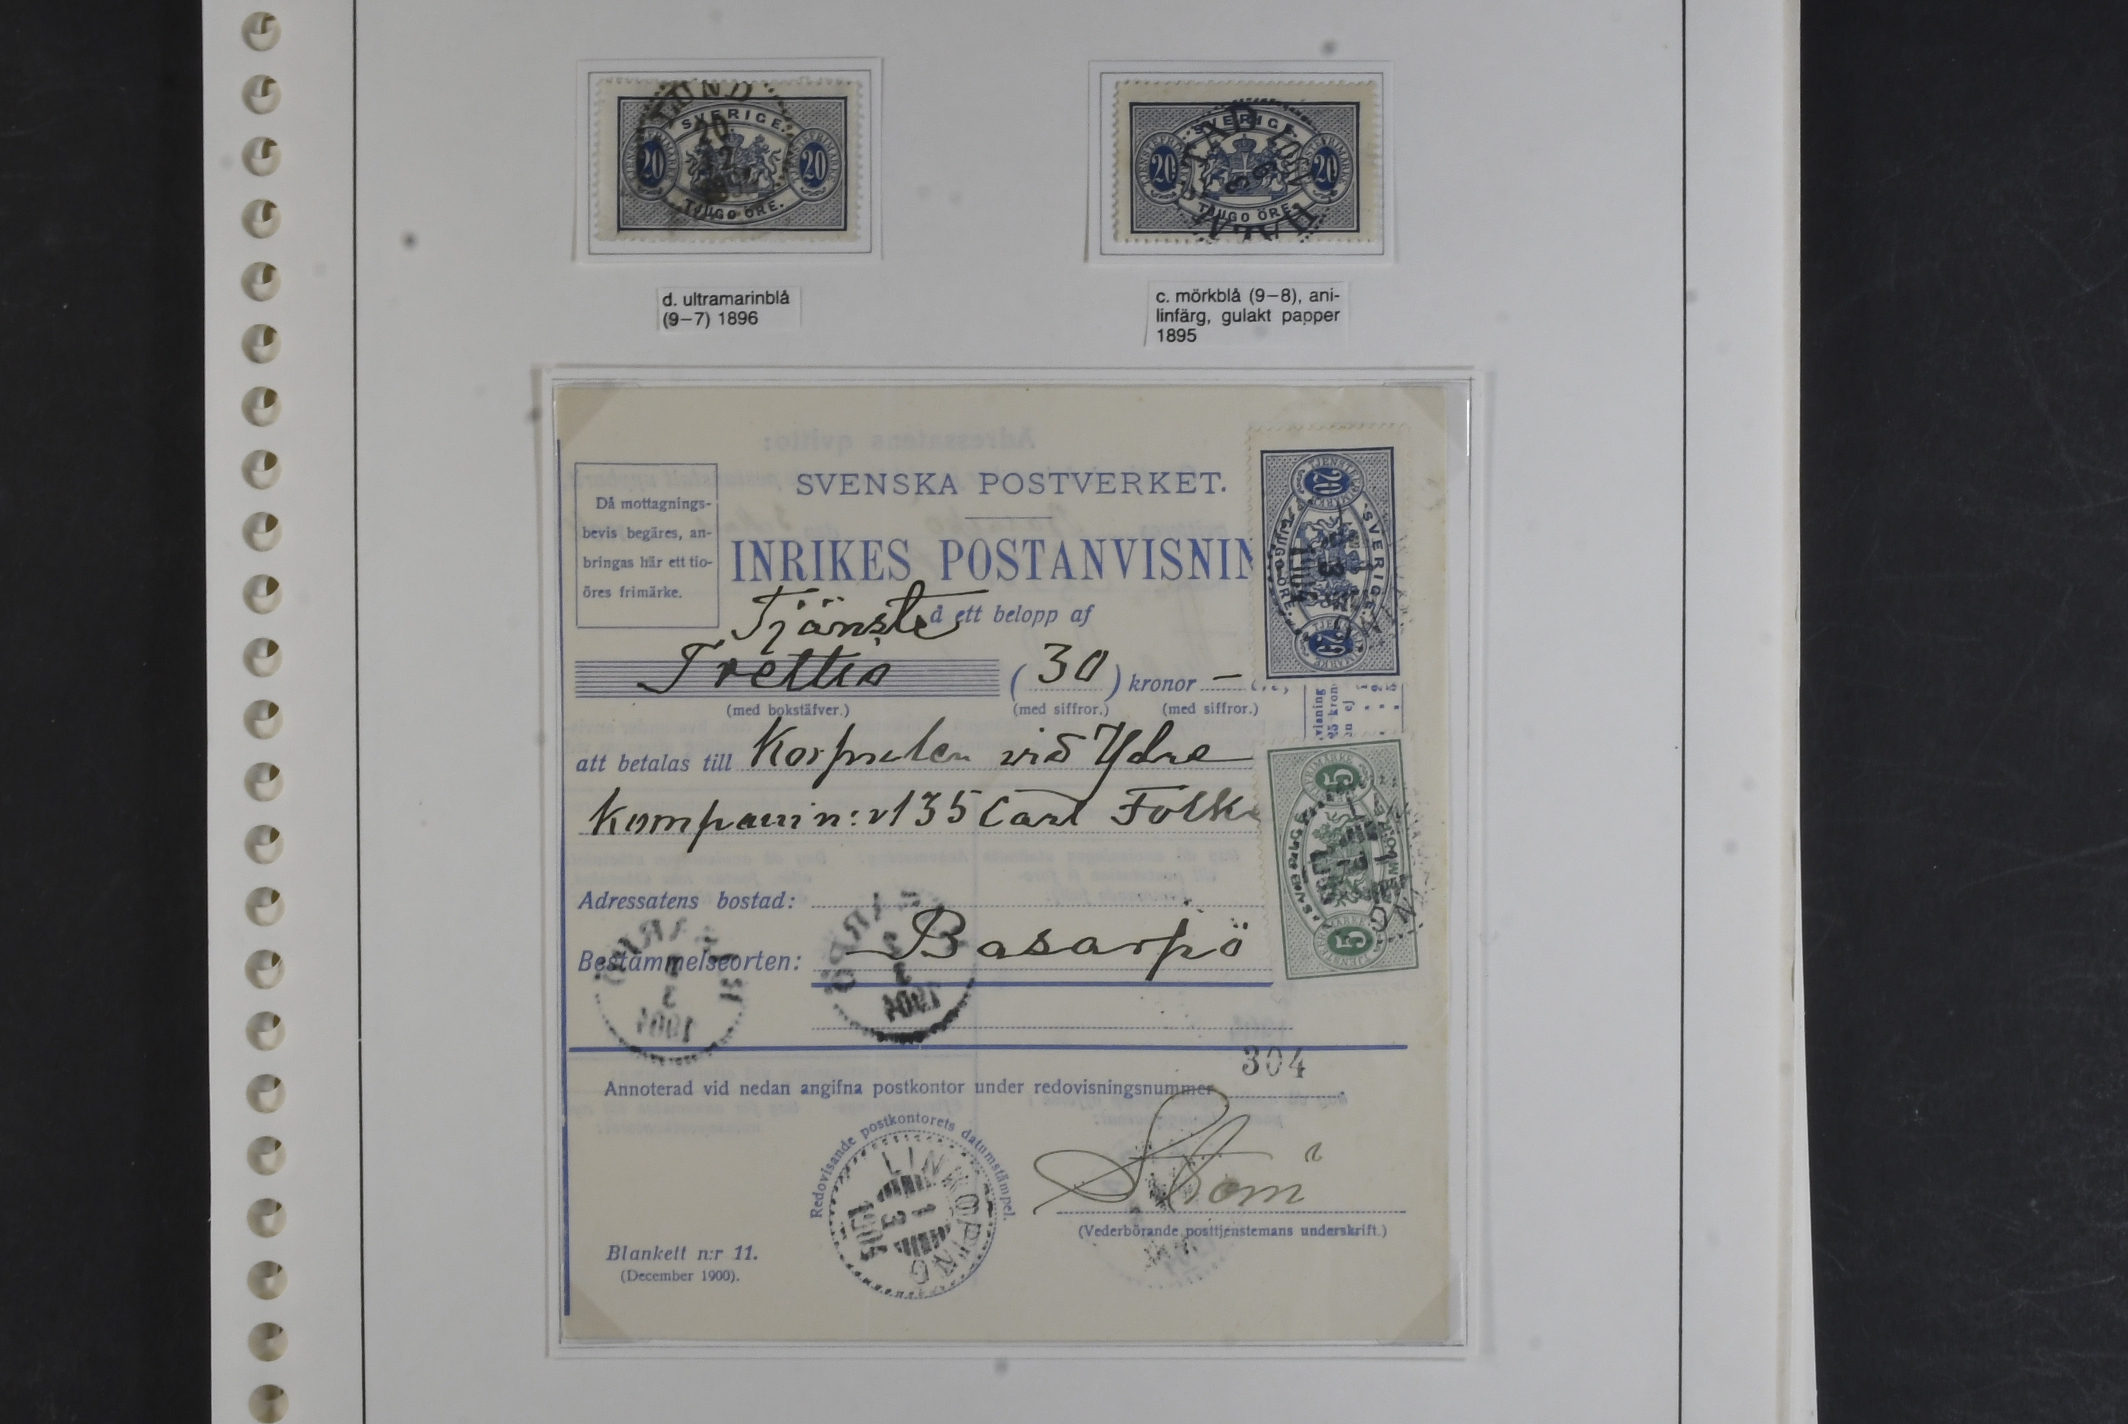 SVERIGE.
20 20
TJUGO ÖRE.
20
12
SVERIGE.
20 20
TJUGO ÖRE.
d. ultramarinblå
(9–7) 1896
c. mörkblå (9–8), ani-
linfärg, gulakt papper
1895
Då mottagnings-
bevis begäres, an-
bringas här ett tio-
öres frimärke.
SVENSKA POSTVERKET.
INRIKES POSTANVISNIN
Tjänste
å ett belopp af
Trettio (30) kronor –
(med bokstäfver.) (med siffror.) (med siffror.)
att betalas till Korpralen vid Ydre
Kompani n:r 135 Carl Folke
Adressatens bostad:
Bestämmelseorten: Basarpö
304
Annoterad vid nedan angifna postkontor under redovisningsnummer
Redovisande postkontorets datumstämpel.
LINKÖPING
1
3
1904
Ström
(Vederbörande posttjenstemans underskrift.)
Blankett n:r 11.
(December 1900).
20
TJENSTEFRIMÄRKE
SVERIGE.
TJUGO ÖRE.
20
5
SVERIGE
FEM ÖRE
5